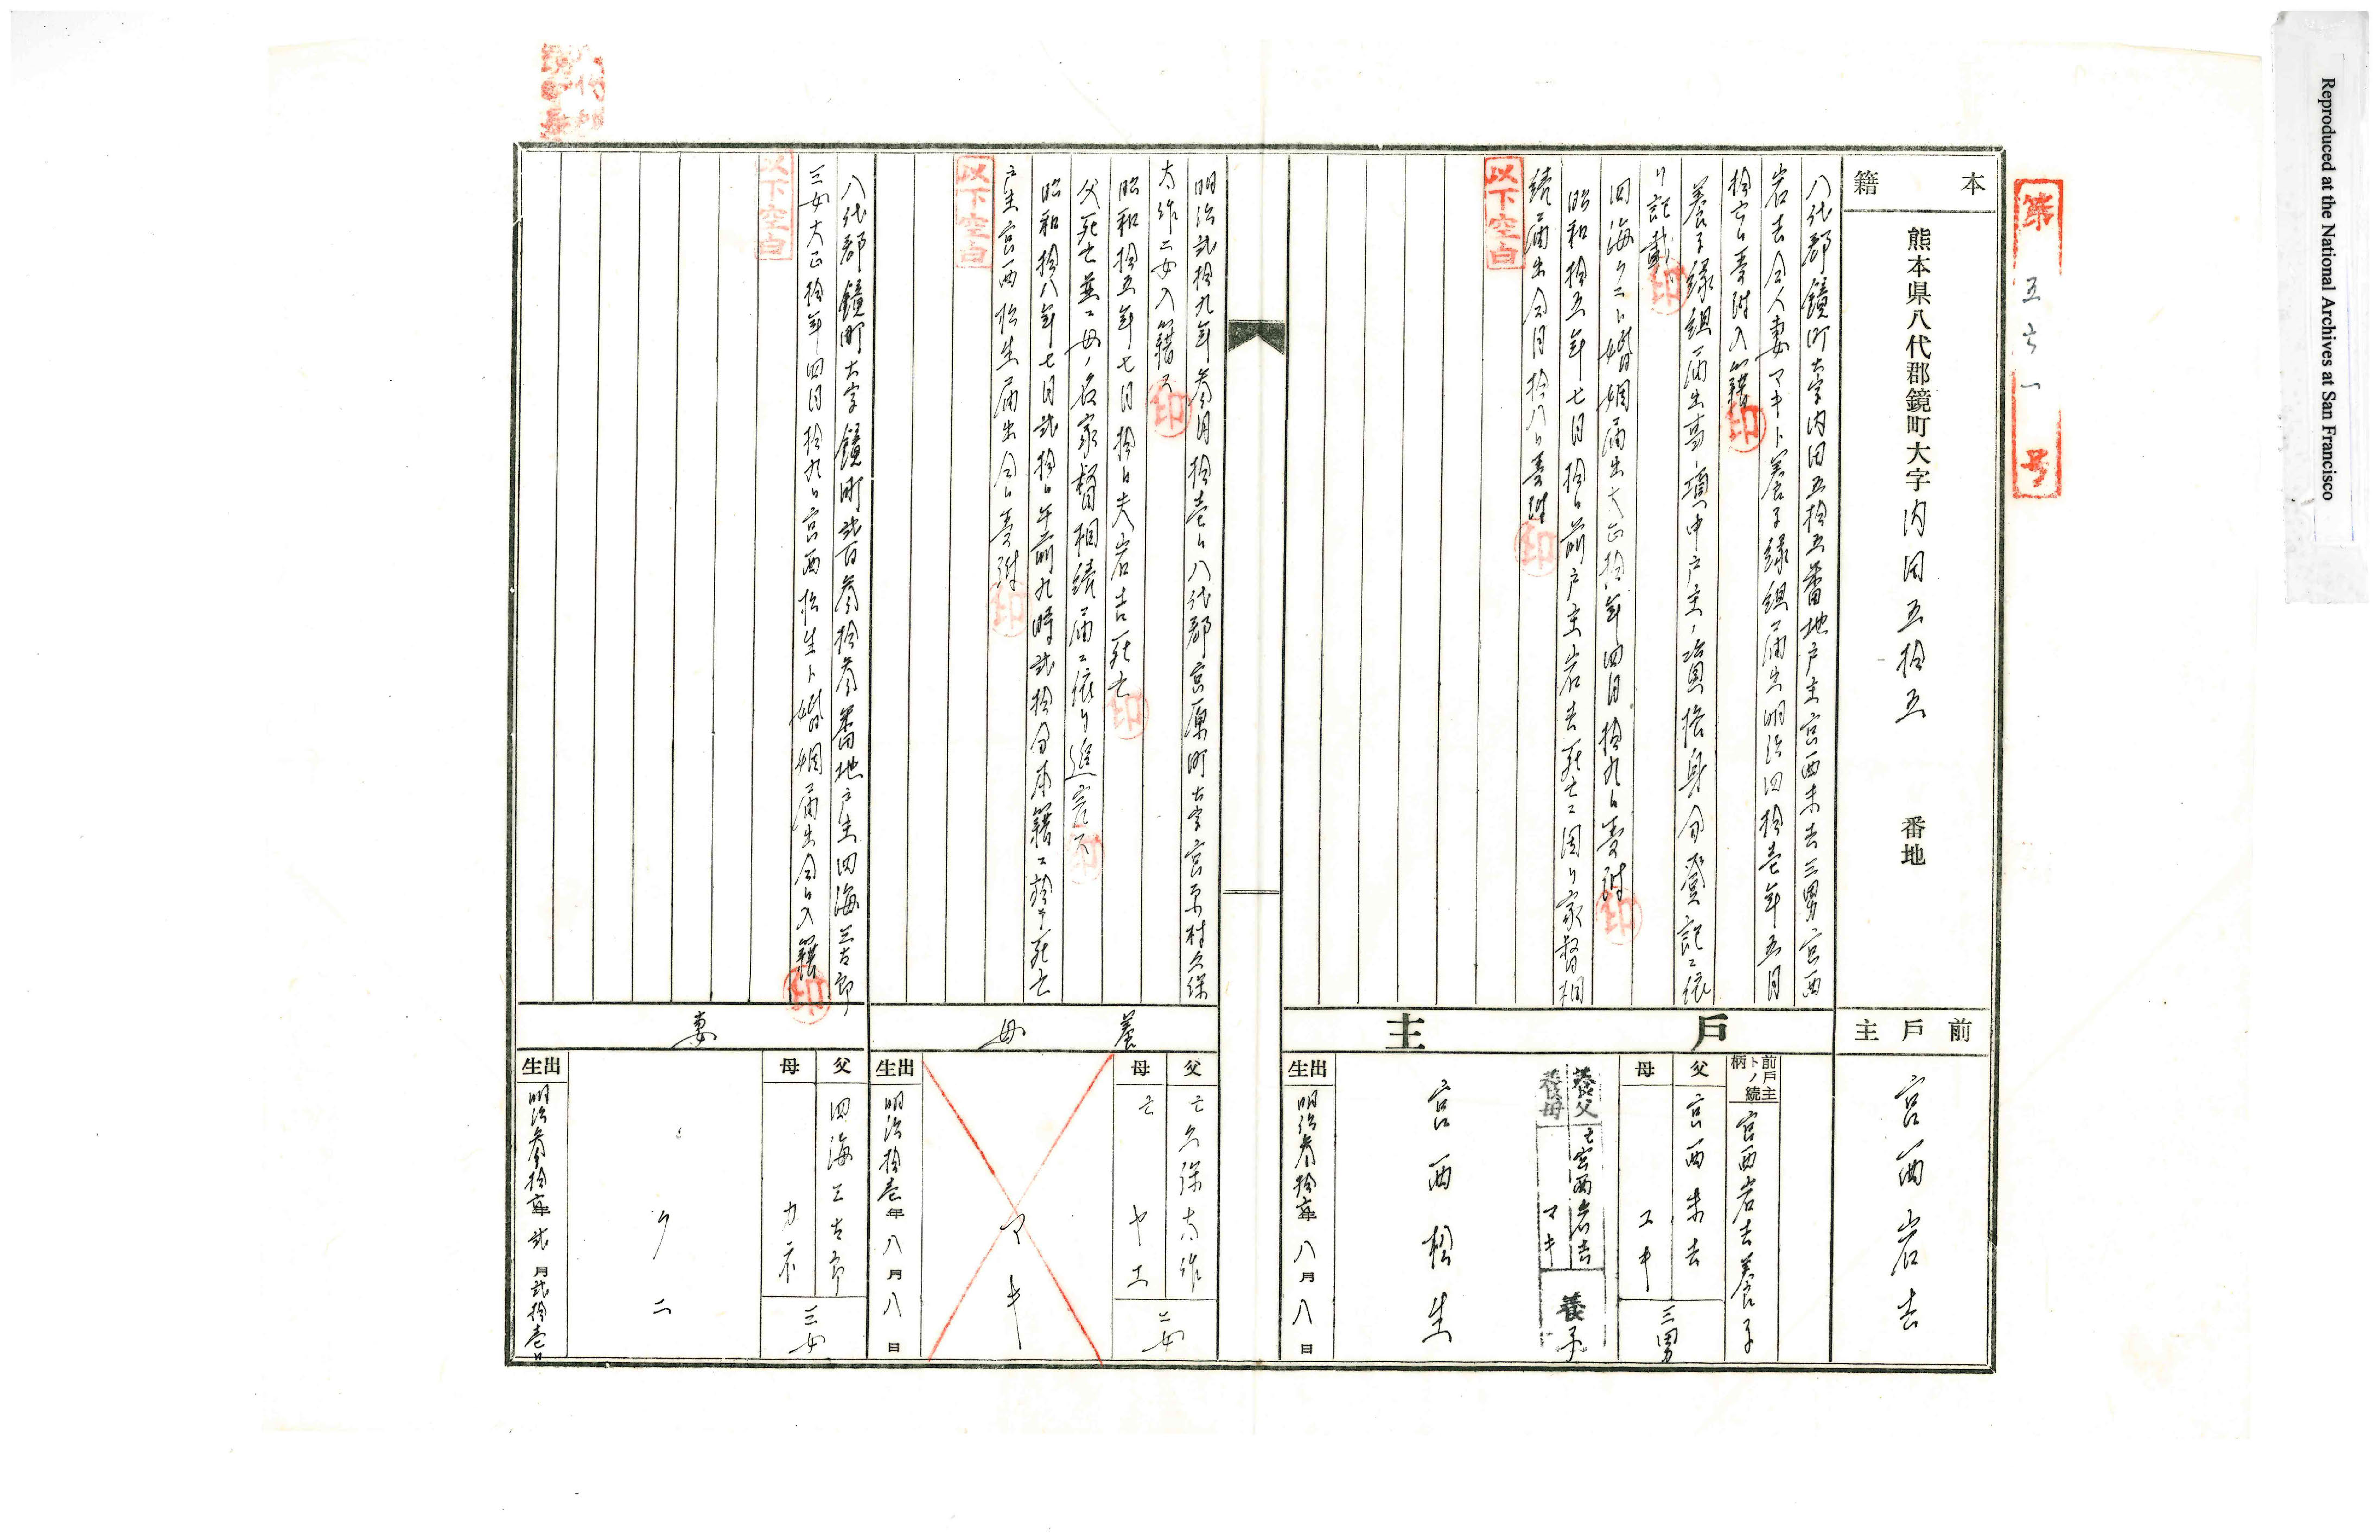 Reproduced at the National Archives at San Francisco
第 五六一 号
本籍
熊本県八代郡鏡町大字内田五拾五番地
前戸主
宮西岩吉
八代郡鏡町大字内田五拾五番地戸主宮西末吉三男宮西
岩吉仝人妻マキト養子縁組届出明治四拾壱年五月
拾六日受附入籍 印
養子縁組届出事項中戸主ノ 身分登記ニ依
リ記載 印
四海クニト婚姻届出大正拾年四月拾九日受附 印
昭和拾五年七月拾日前戸主岩吉死亡ニ因リ家督相
続届出仝月拾八日受附 印
以下空白
戸主
前戸主トノ続柄
宮西岩吉養子
父
宮西末吉
母
ユキ
三男
養父
亡宮西岩吉
養母
マキ
養子
宮西松生
出生
明治参拾 年八月八日
明治弐拾九年参月拾壱日八代郡宮原町大字宮原村久保
太作二女入籍ス 印
昭和拾五年七月拾日夫岩吉死亡 印
父死亡並ニ母ノ名家督相続届ニ依リ 印
昭和拾八年七月弐拾日午前九時弐拾分本籍ニ於テ死亡
戸主宮西松生届出仝日受附 印
以下空白
養母
父
亡久保太作
母
亡ヤエ
二女
マキ
出生
明治拾壱年八月八日
八代郡鏡町大字鏡町弐百参拾参番地戸主四海三古郎
三女大正拾年四月拾九日宮西松生ト婚姻届出仝日入籍 印
以下空白
妻
父
四海三古郎
母
カネ
三女
クニ
出生
明治参拾 年弐月弐拾壱日